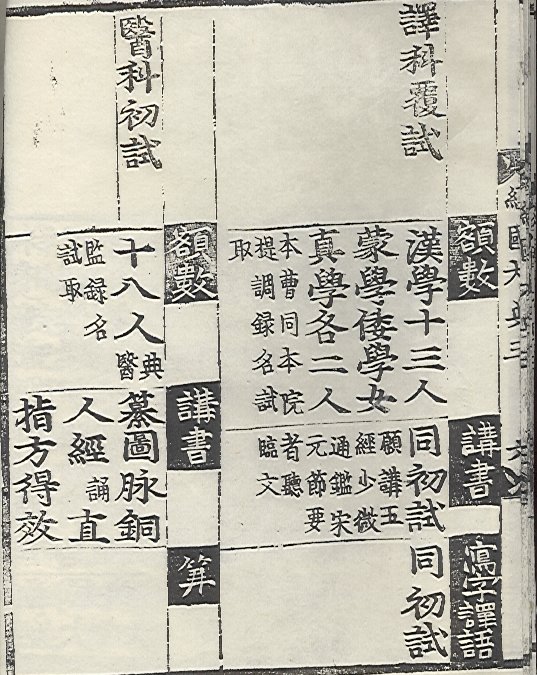 經國大典三
譯科覆試
額數
漢學十三人
蒙學倭學女
真學各二人
本曹同本院
提調録名試
取
講書
同初試
願講五
經少微
通鑑宋
元節要
者聽
臨文
寫字譯語
同初試
醫科初試
額數
十八人典醫
監録名
試取
講書
纂圖脉銅
人經誦直
指方得效
筭